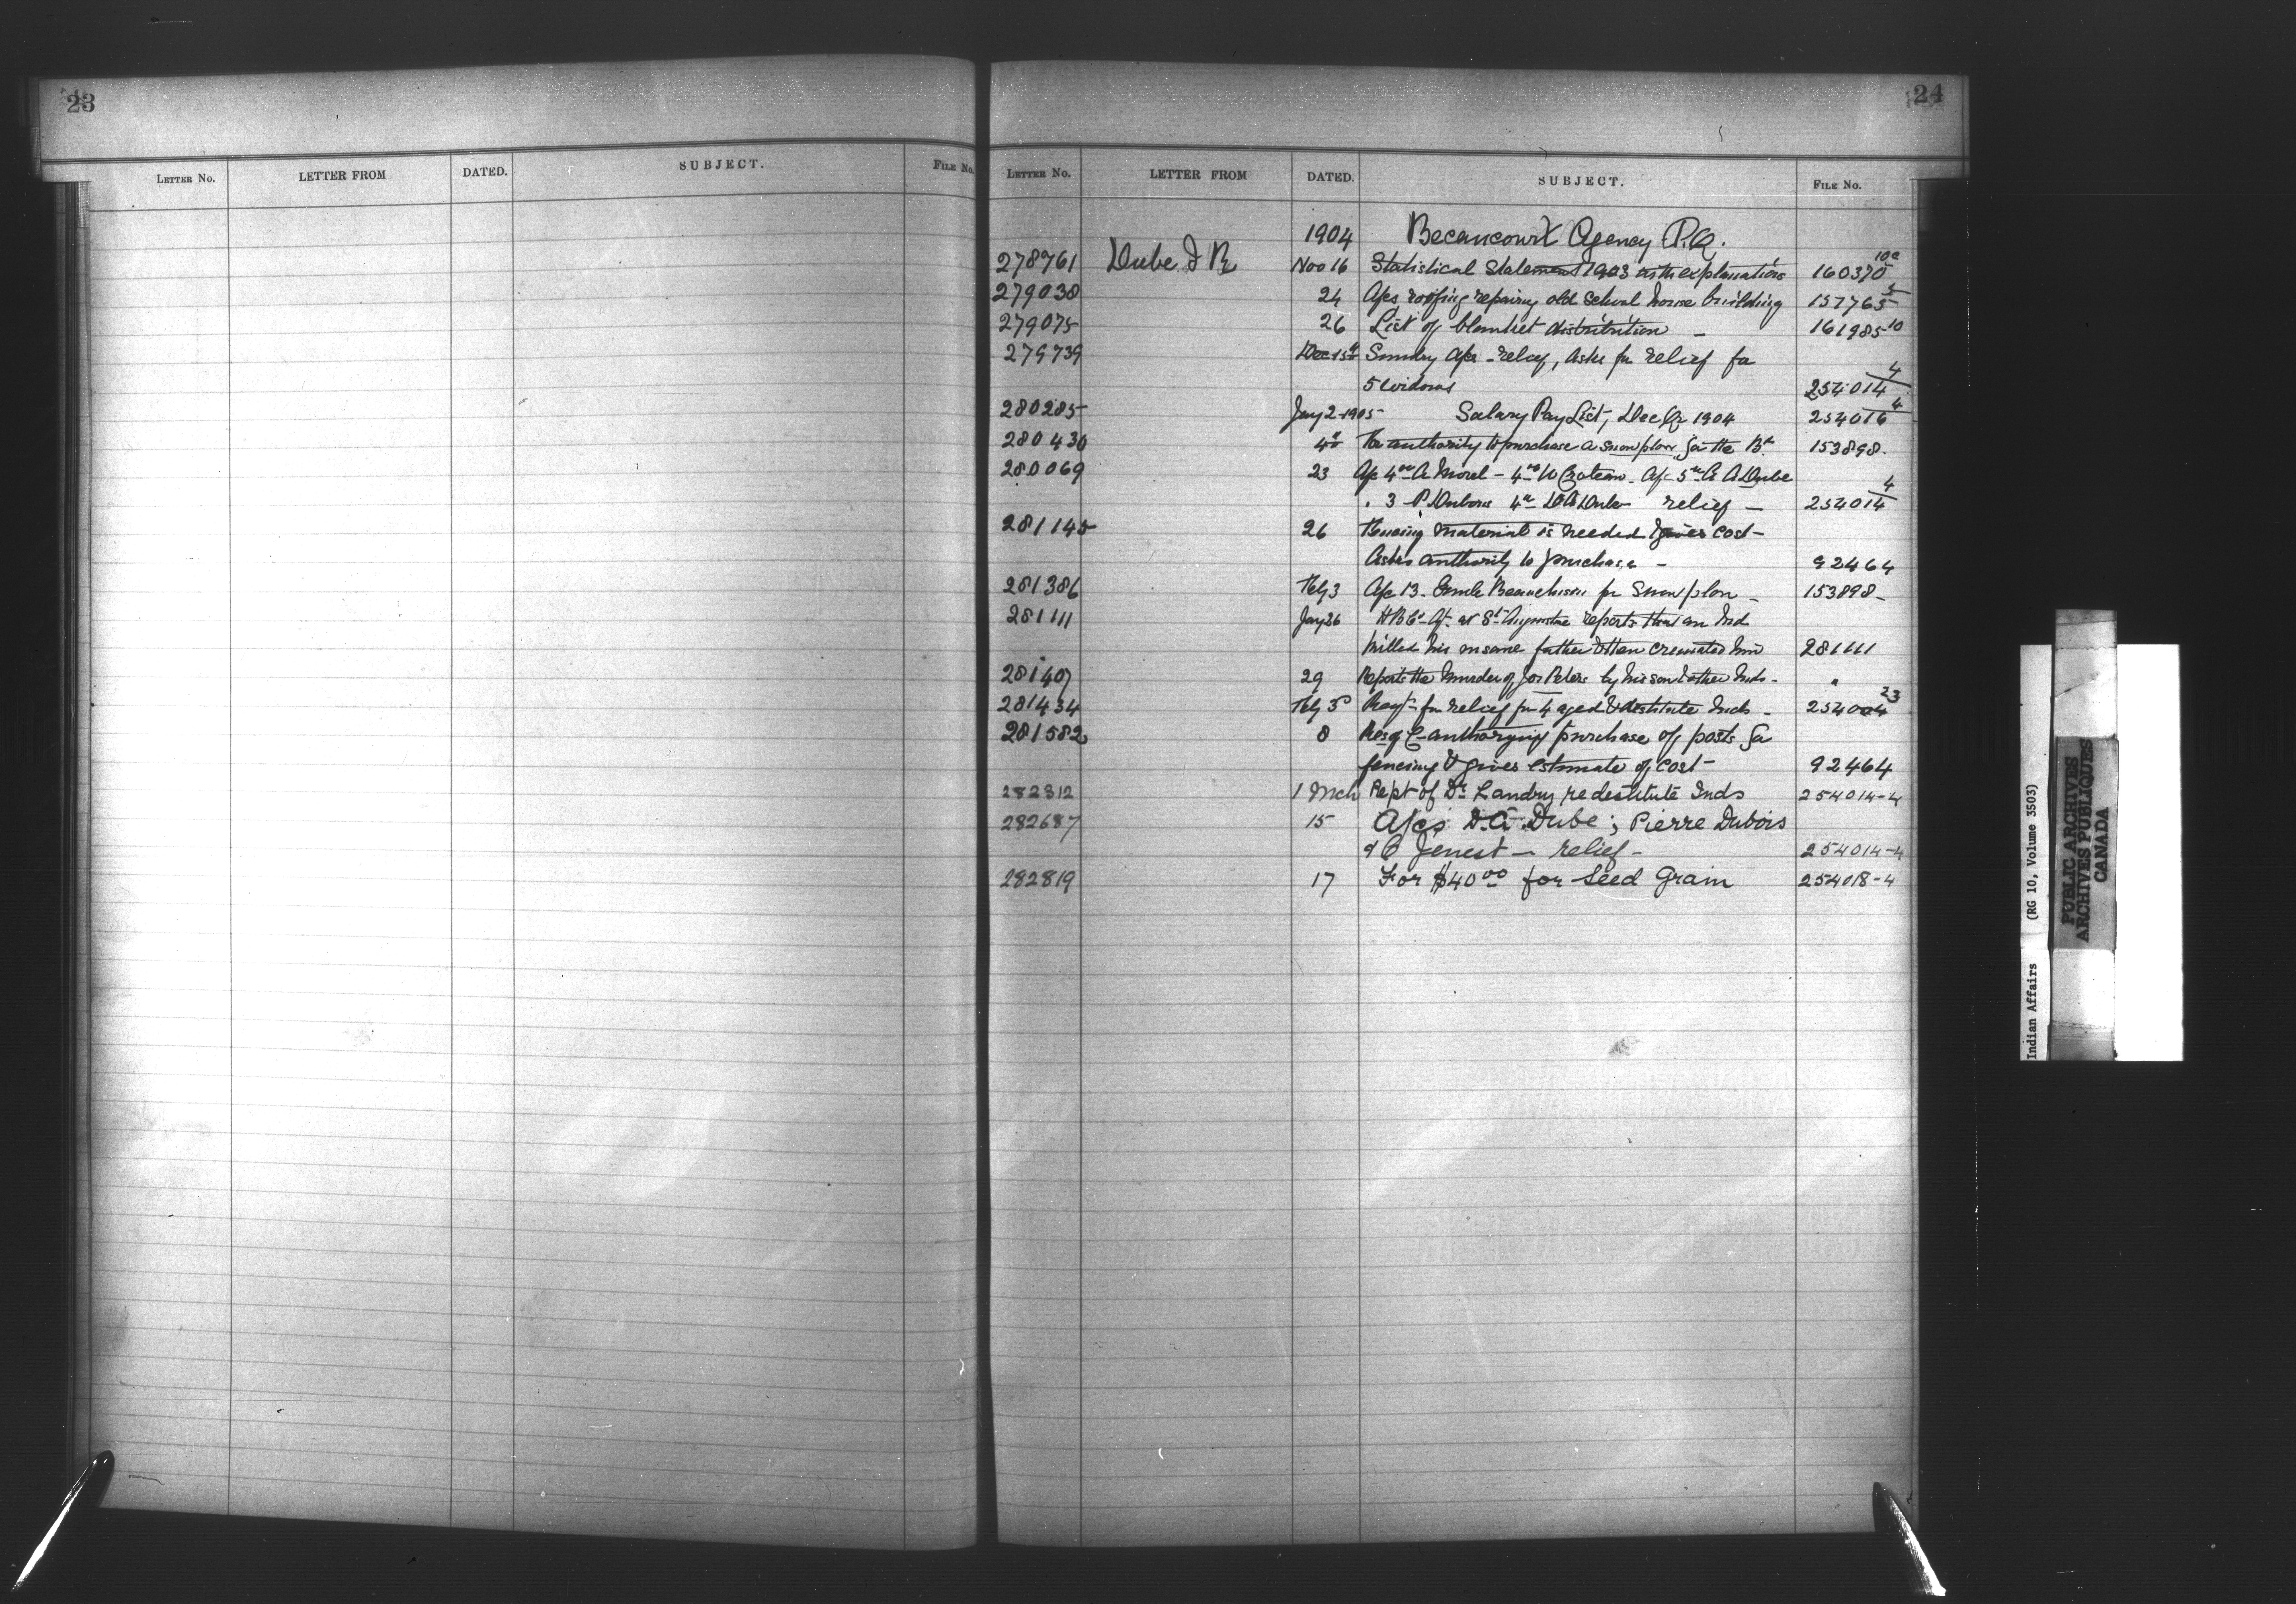 23
24
LETTER No. LETTER FROM DATED. SUBJECT. FILE No.
LETTER No. LETTER FROM DATED. SUBJECT. FILE No.
1904 Becancourt Agency P.Q.
278961 Dube J R Nov 16 Statistical Statement 1903 with explanations 160370 10a
279038 24 Apcs roofing repairing old School house building 157765 5
279075 26 List of blanket distribution – 161985 10
279739 Dec 15th Sundry Apcs – relief, asks for relief for
5 widows 254014 4
280285 Jany 2-1905 Salary Pay List, Dec Qr 1904 254016 4
280430 4th For authority to purchase a snow plow for the Bd. 153898.
280069 23 Apc 4.00 A Morel – 4.00 W Croteau. Apc 5.00 A A Dube
. 3 P. Dubois 4.00 D A Dube relief – 254014 4
281145 26 Fencing material is needed & gives cost –
Asks authority to purchase – 92464
281386 Feby 3 Apc 13. Emile Beauchesne for Snow plow – 153898 –
281111 Jany 26 H B Co. Agt. at St. Augustine reports that an Ind
killed his insane father & then cremated him 281111
281407 29 Reports the Murder of Jos Peters by his son & other Inds – "
281434 Feby 3rd for relief for 4 aged & destitute Inds – 254004 23
281582 8 Res of C – authorizing purchase of posts for
fencing & gives estimate of cost – 92464
282312 1 Mch Rept of Dr Landry re destitute Inds 254014-4
282687 15 A/cs D. A Dube; Pierre Dubois
& C Jenest – relief – 254014-4
282819 17 For $40.00 for Seed Grain 254018-4
Indian Affairs (RG 10, Volume 3503)
PUBLIC ARCHIVES
ARCHIVES PUBLIQUES
CANADA